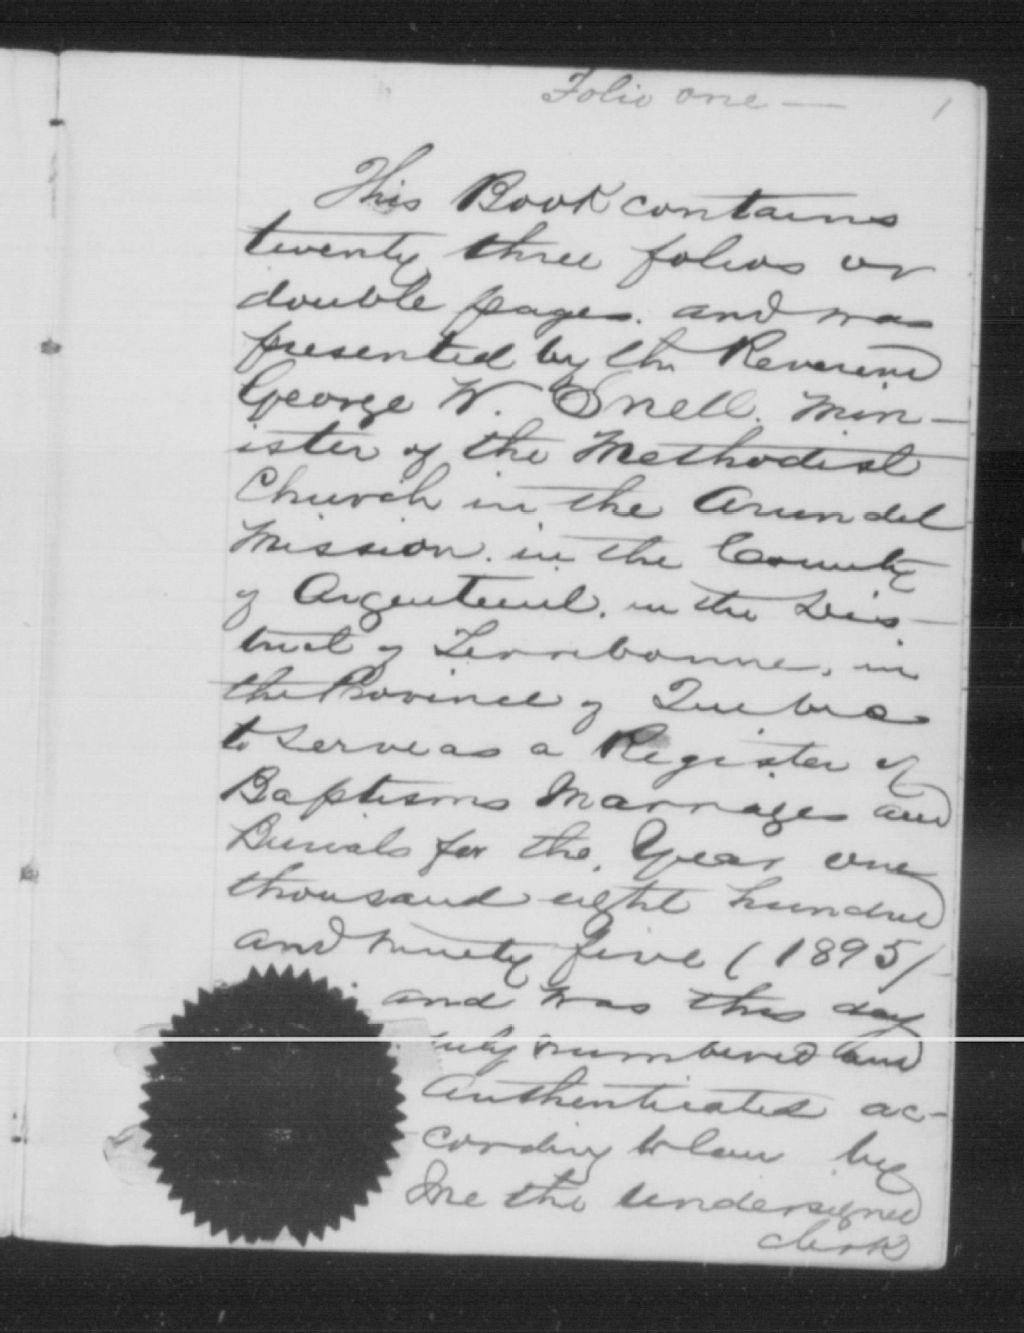 Folio one — 1
This Book contains
twenty three folios or
double pages. and was
presented by the Reverend
George W. Snell. Min-
ister of the Methodist
Church in the Arundel
Mission. in the County
of Argenteuil. in the Dis-
trict of Terrebonne, in
the Province of Quebec
to serve as a Register of
Baptisms Marriages and
Burials for the Year one
thousand eight hundred
and ninety five (1895)
and was this day
duly numbered and
authenticated ac-
cording to law by
me the undersigned
clerk